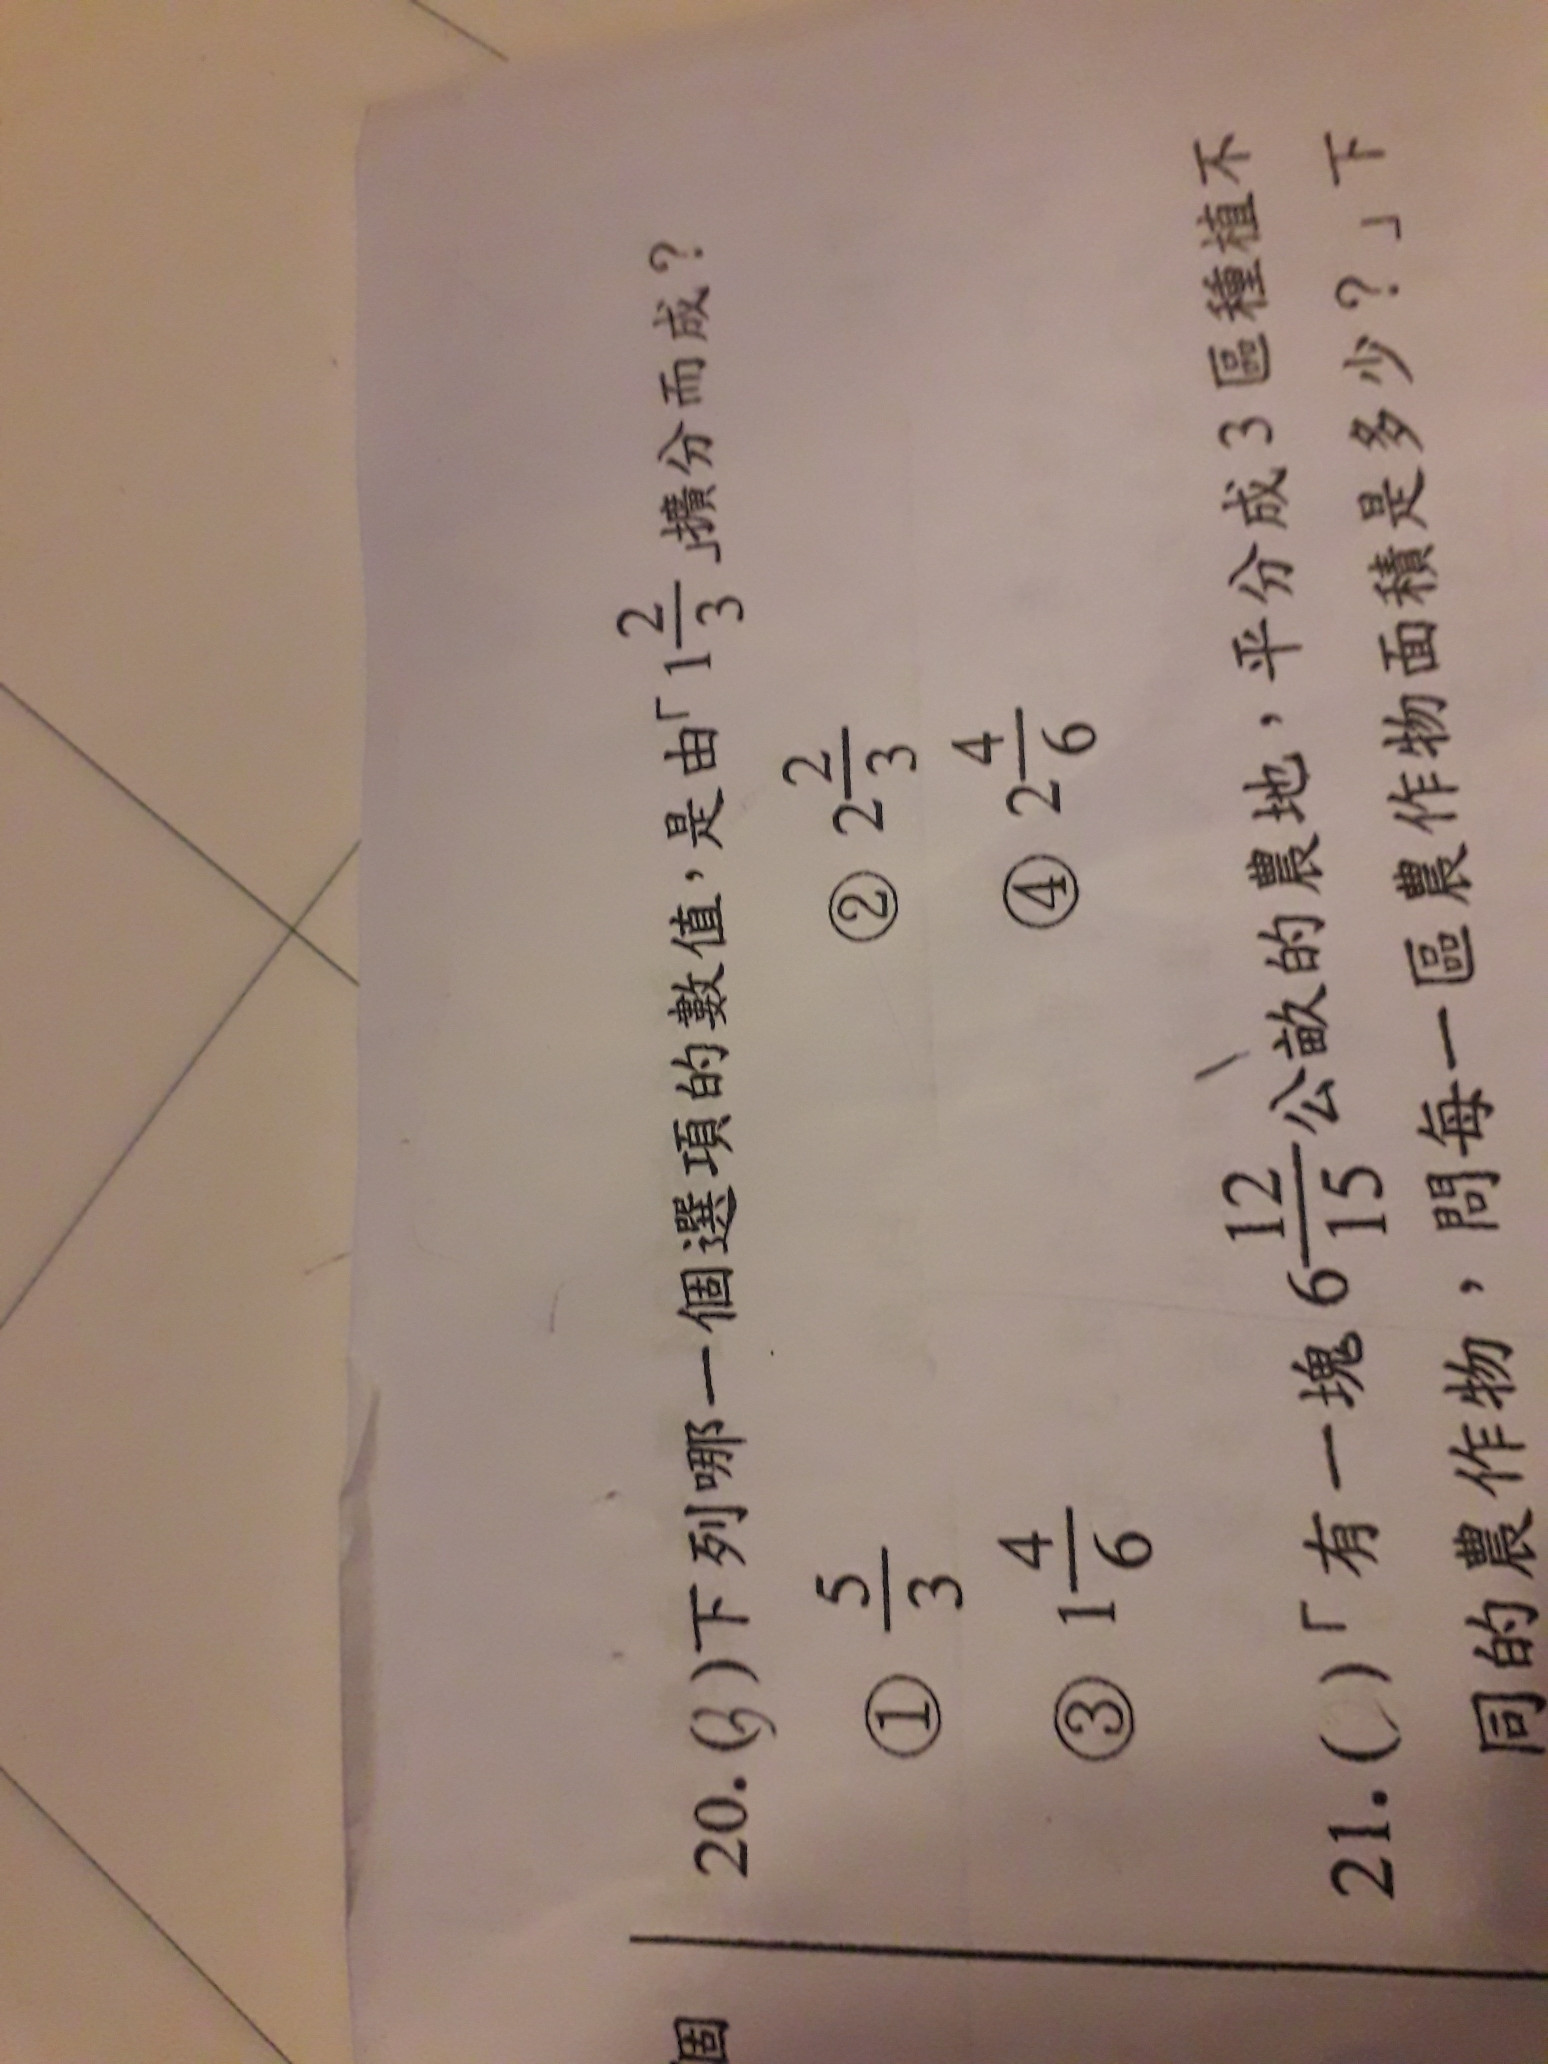 個
20.(3)下列哪一個選項的數值，是由「1\frac{2}{3}」擴分而成？
① \frac{5}{3} ② 2\frac{2}{3}
③ 1\frac{4}{6} ④ 2\frac{4}{6}
21.( )「有一塊 6\frac{12}{15}公畝的農地，平分成 3 區種植不
同的農作物，問每一區農作物面積是多少？」下